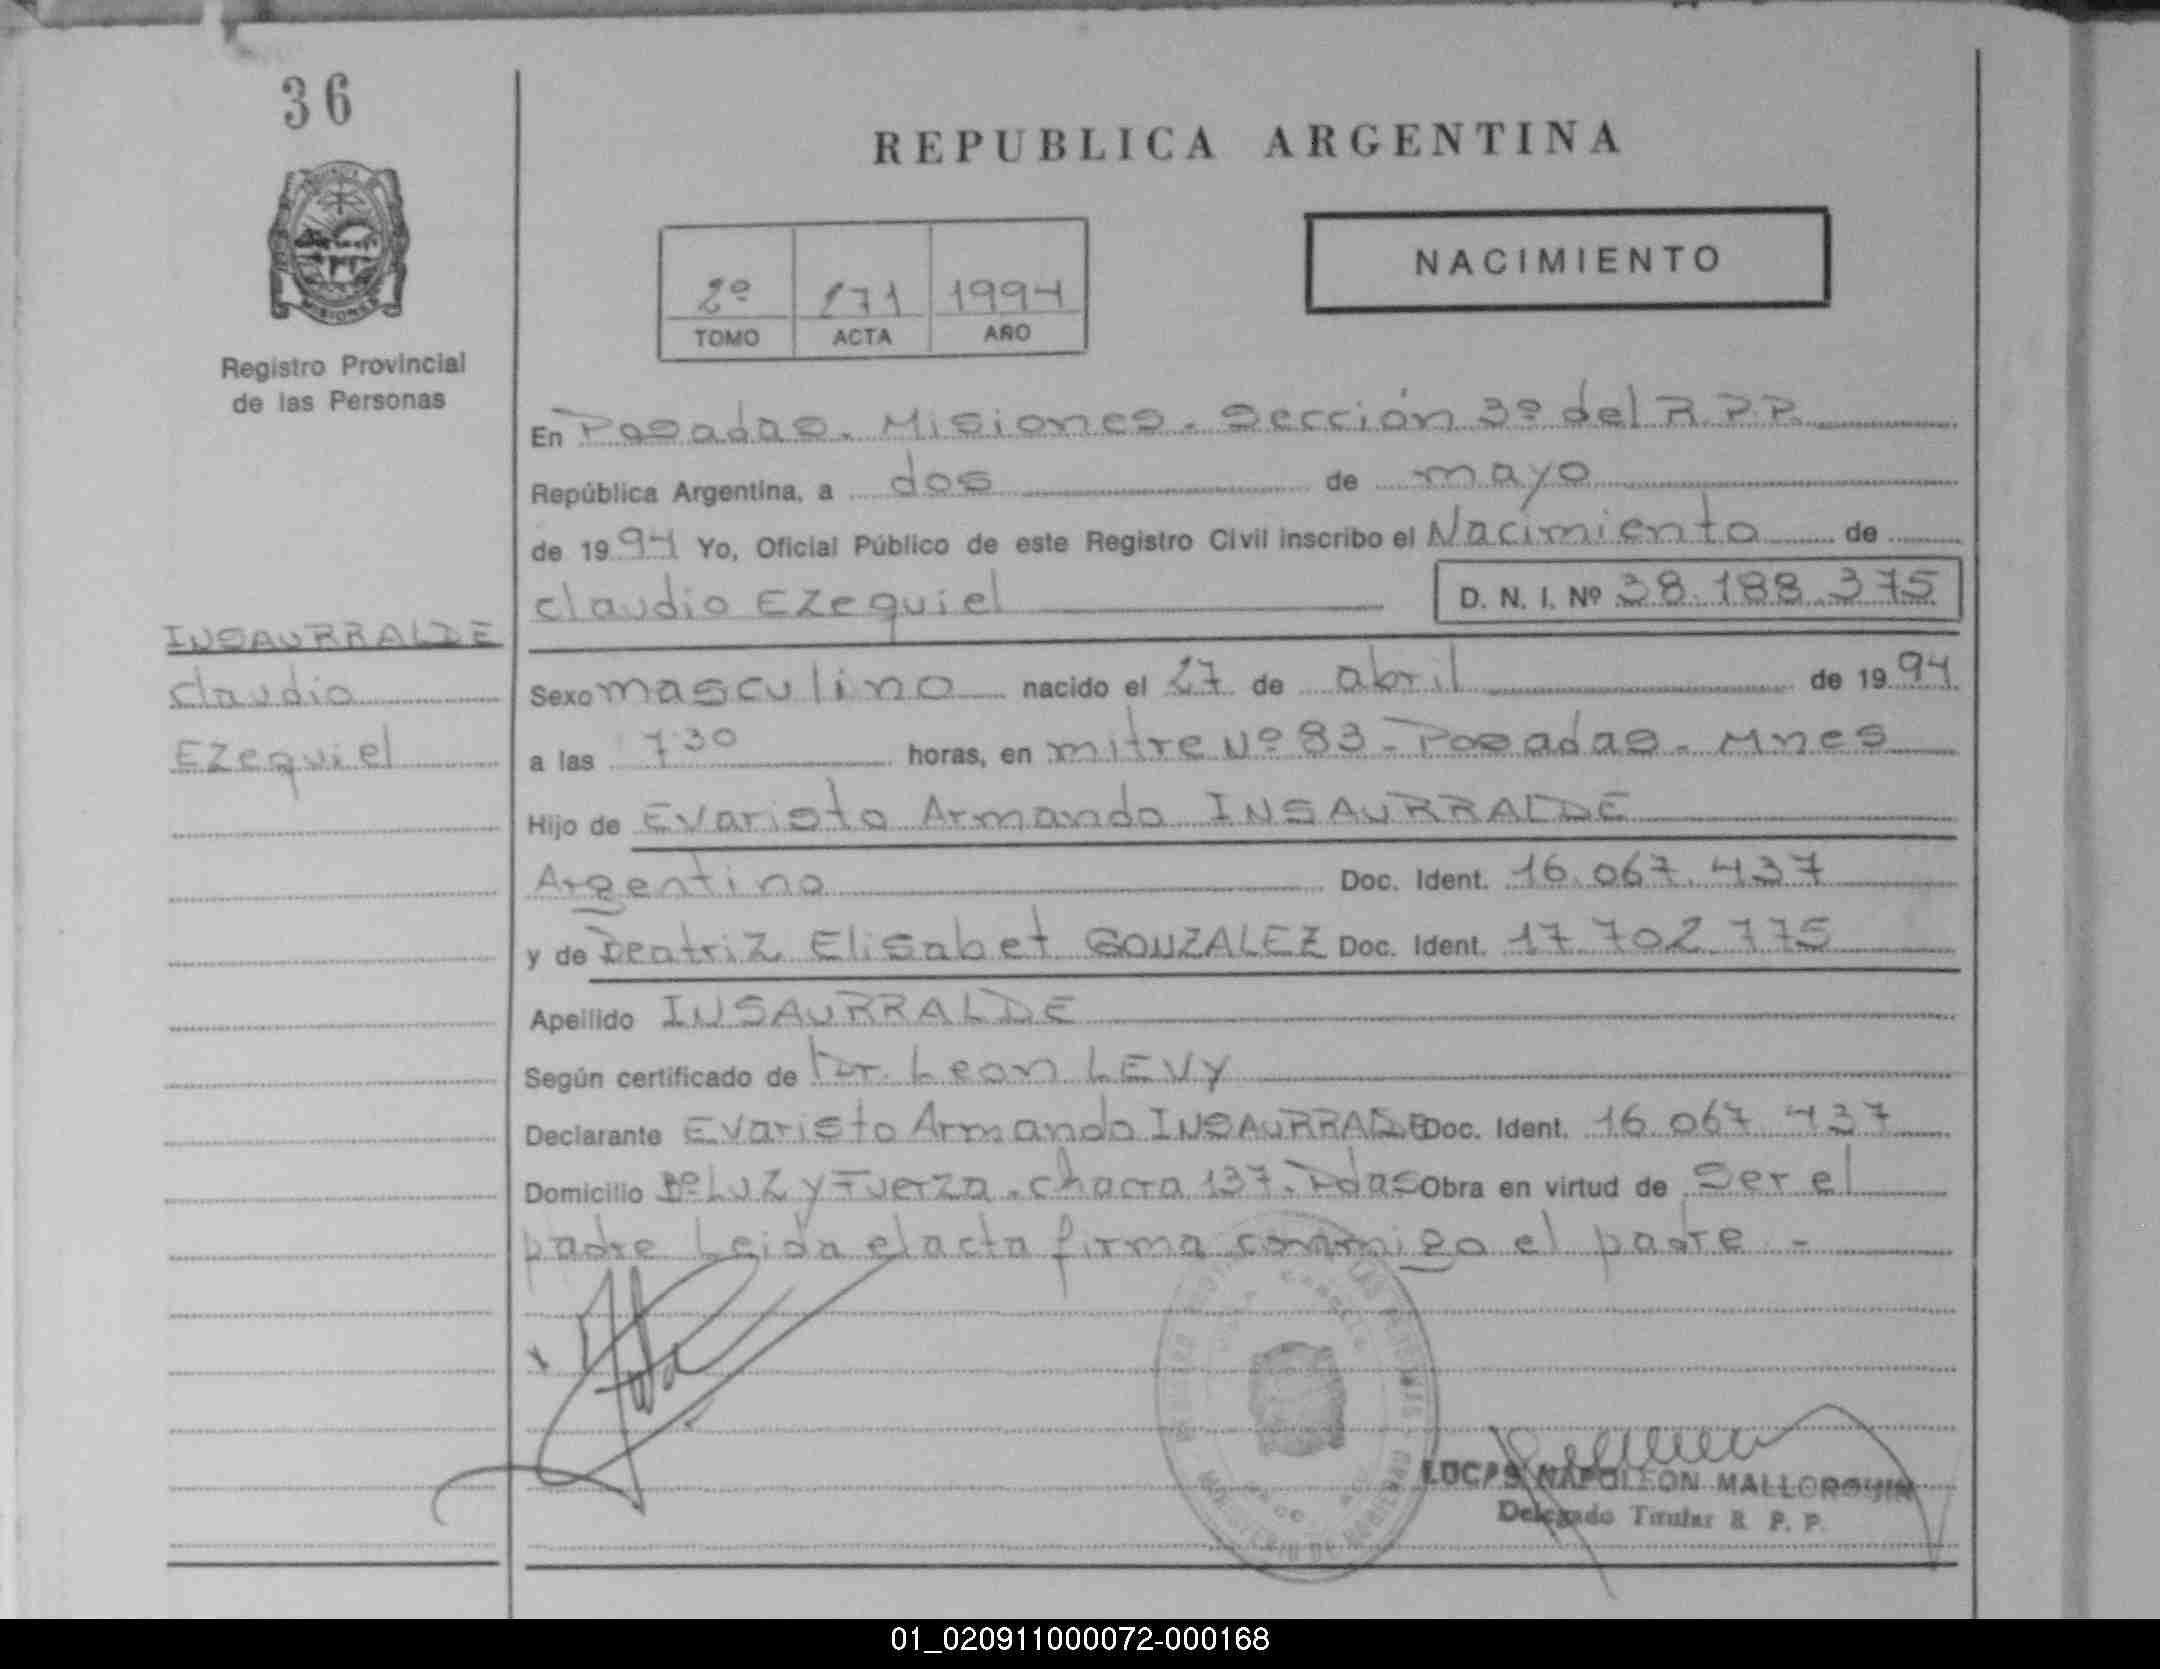 36
REPUBLICA ARGENTINA
NACIMIENTO
2º 271 1994
TOMO ACTA AÑO
Registro Provincial
de las Personas
En Posadas. Misiones. Sección 3º del R.P.P.
República Argentina, a dos de mayo
de 1994 Yo, Oficial Público de este Registro Civil inscribo el Nacimiento de
Claudio Ezequiel D. N. I. Nº 38.188.375
INSAURRALDE
Claudio
Ezequiel
Sexo masculino nacido el 27 de abril de 1994
a las 7 30 horas, en mitre Nº 83 - Posadas - Mnes
Hijo de Evaristo Armando INSAURRALDE
Argentino Doc. Ident. 16.067.437
y de Beatriz Elisabet GONZALEZ Doc. Ident. 17 702 775
Apellido INSAURRALDE
Según certificado de Dr. Leon LEVY
Declarante Evaristo Armando INSAURRALDE Doc. Ident. 16 067 437
Domicilio Bº Luz y Fuerza. chacra 137. Pdas Obra en virtud de Ser el
padre Leida el acta firma conmigo el padre -
MINISTERIO DE GOBIERNO
LUCAS NAPOLEON MALLORQUIN
Delegado Titular R. P. P.
01_020911000072-000168